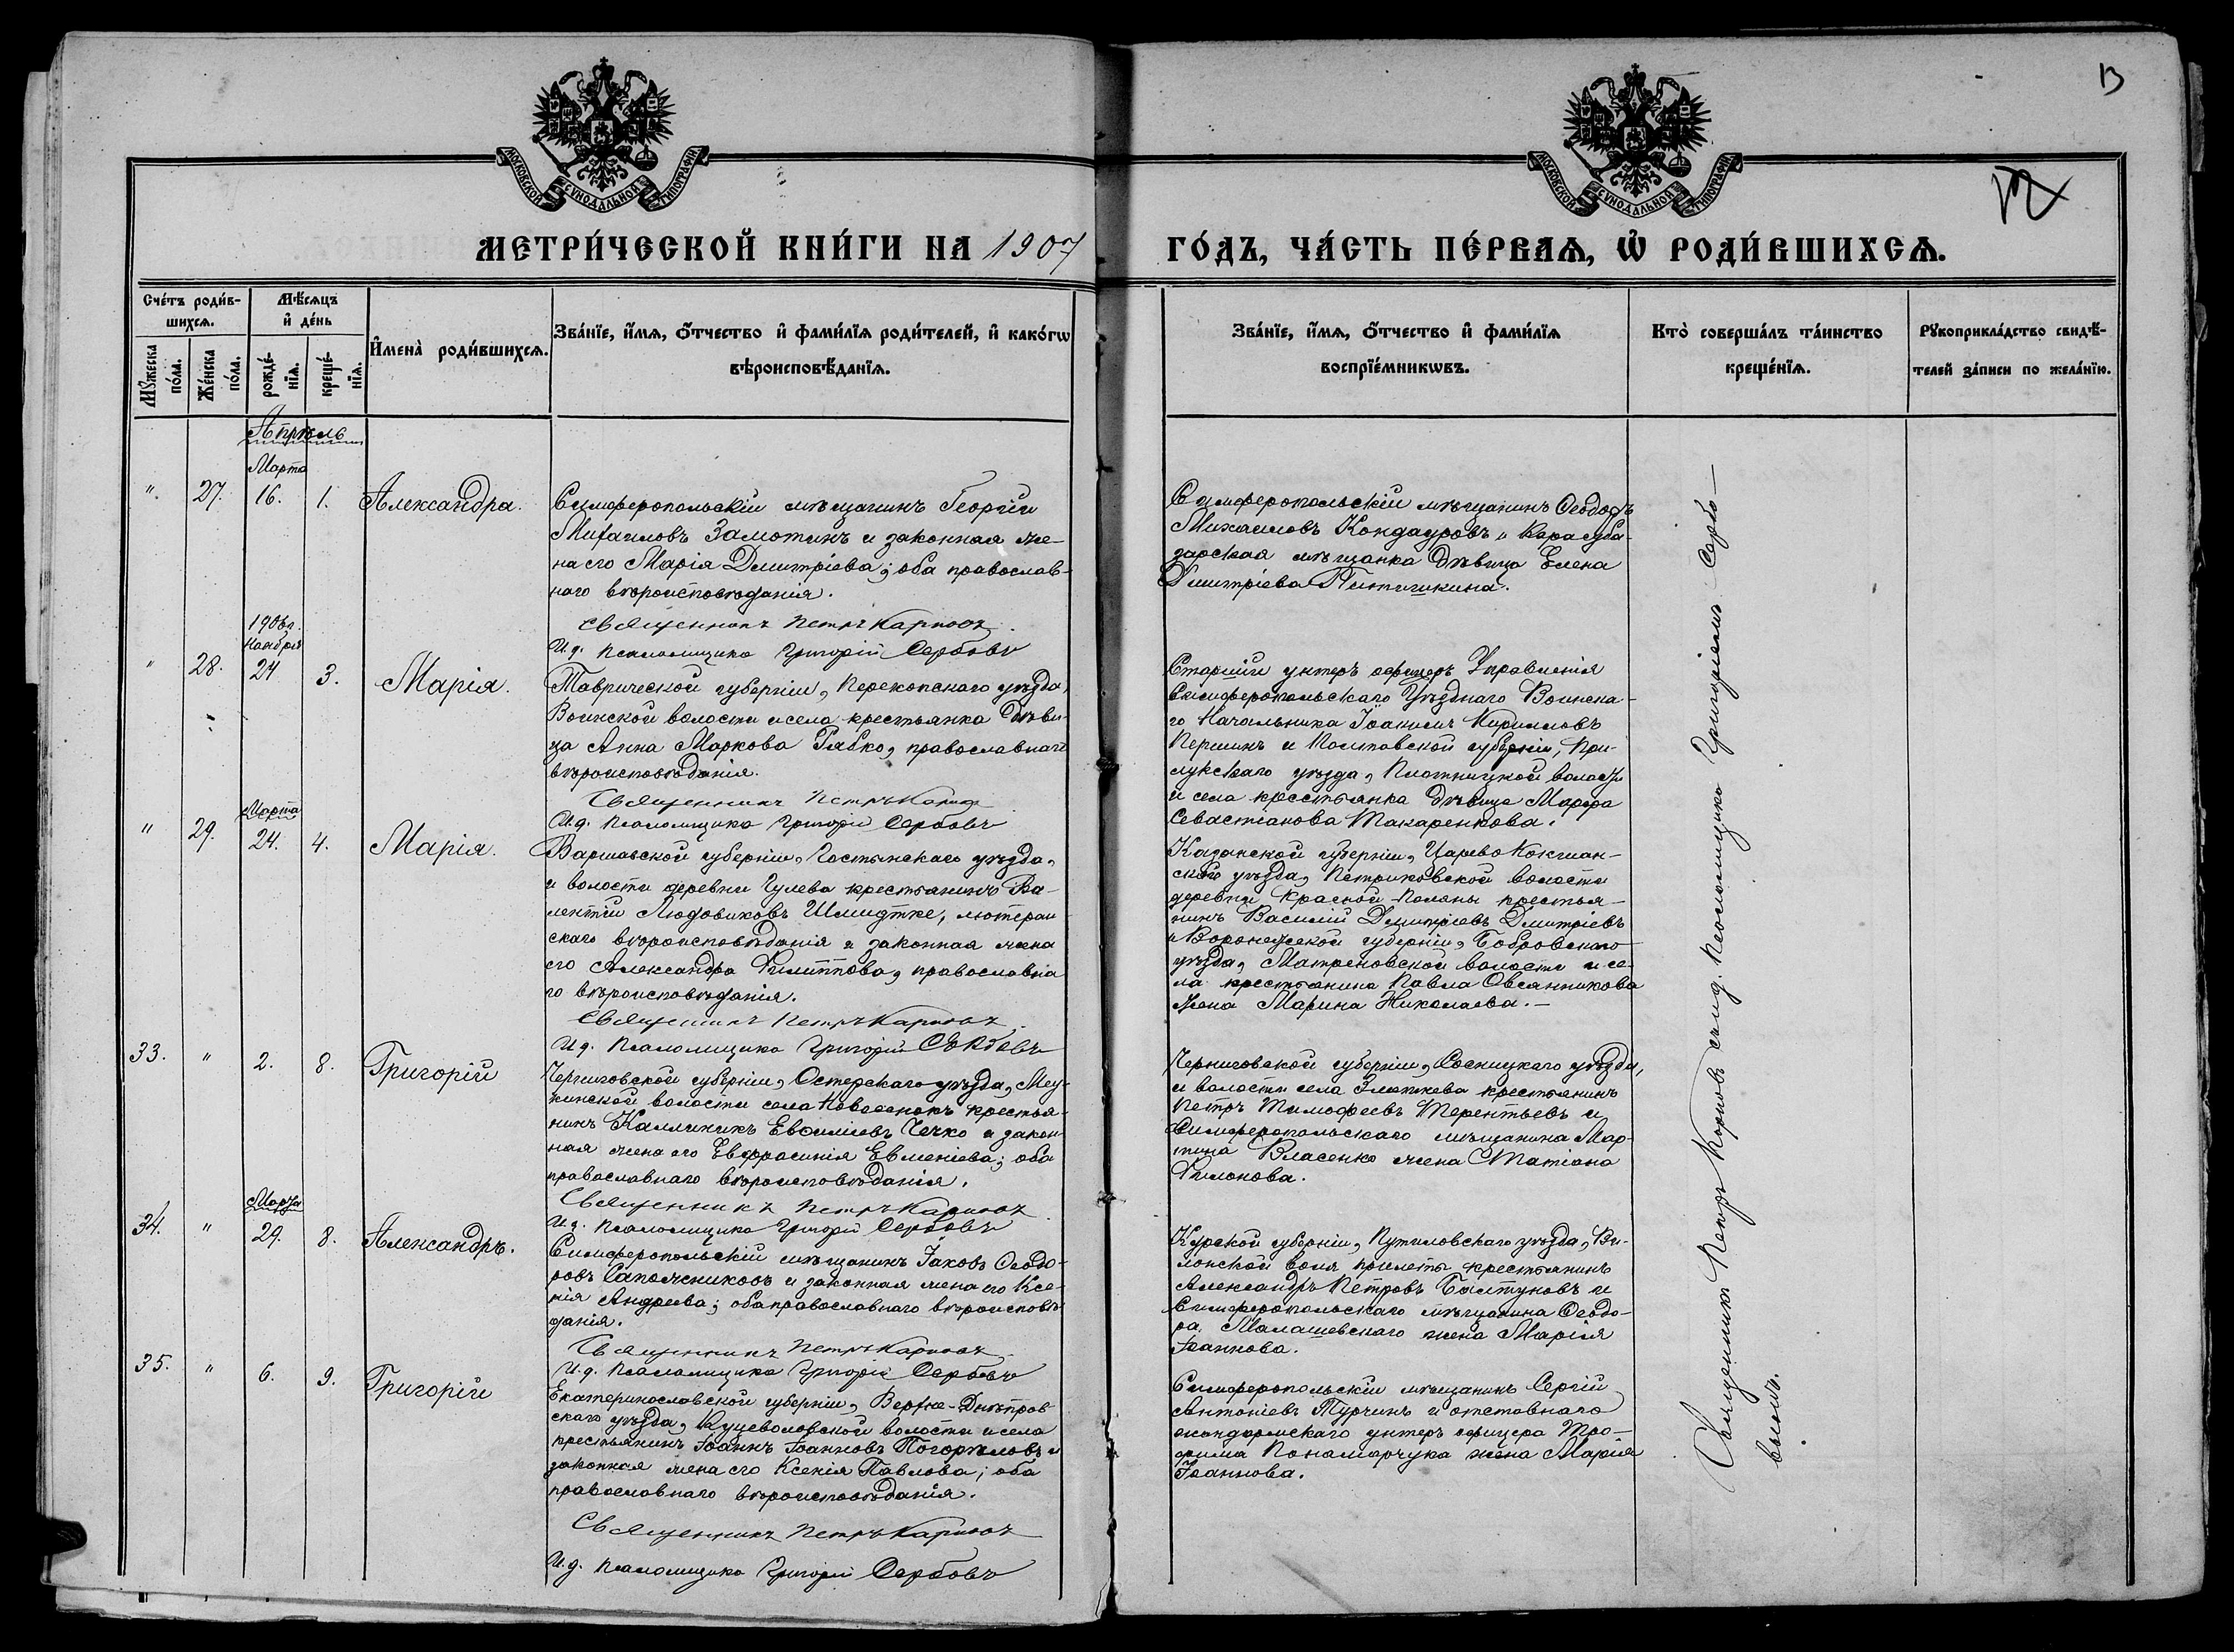 13
МОСКОВСКОЙ СѴНОДАЛЬНОЙ ТИПОГРАФІИ
МОСКОВСКОЙ СѴНОДАЛЬНОЙ ТИПОГРАФІИ
МЕТРИ́ЧЕСКОЙ КНИ́ГИ НА 1907
ГО́ДЪ, ЧА́СТЬ ПЕ́РВАѦ, Ѡ҆ РОДИ́ВШИХСѦ.
Сче́тъ роди́в-
шихсѧ.
Мꙋ́жеска
по́ла.
Же́нска
по́ла.
Мѣ́сѧцъ
и҆ де́нь
рожде́-
нїѧ.
креще́-
нїѧ.
И҆мена̀ роди́вшихсѧ.
Зва́нїе, и҆́мѧ, ѻ҆́тчество и҆ фами́лїѧ роди́телей, и҆ како́гѡ
вѣроисповѣ́данїѧ.
Зва́нїе, и҆́мѧ, ѻ҆́тчество и҆ фами́лїѧ
воспрїе́мникѡвъ.
Кто̀ соверша́лъ та́инство
креще́нїѧ.
Рꙋкоприкла́дство свидѣ́-
телей за́писи по жела́нїю.
Апрѣль
Марта
" 27. 16. 1. Александра.
Симферопольскій мѣщанинъ Георгій
Михаиловъ Замотинъ и законная же-
на его Марія Димитріева; оба православ-
наго вѣроисповѣданія.
Священникъ Петръ Карповъ
И.д. псаломщика Григорій Сербовъ
Симферопольскій мѣщанинъ Ѳеодоръ
Михаиловъ Кондауровъ и Карасуба-
зарская мѣщанка дѣвица Елена
Димитріева Питичкина.
1906 г.
Ноября
" 28. 24 3. Марія.
Таврической губерніи, Перекопскаго уѣзда,
Воинской волости и села крестьянка дѣви-
ца Анна Маркова Рябко, православнаго
вѣроисповѣданія.
Священникъ Петръ Карповъ
И.д. псаломщика Григорій Сербовъ
Старшій унтеръ офицеръ Управленія
Симферопольскаго Уѣзднаго Воинска-
го Начальника Іоакимъ Кирилловъ
Першинъ и Полтавской губерніи, При-
лукскаго уѣзда, волости
и села крестьянка дѣвица Марфа
Севастіанова Макаренкова.
Марта
" 29. 24. 4. Марія.
Варшавской губерніи, Гостынскаго уѣзда,
и волости деревни Гулева крестьянинъ Ва-
лентій Людовиковъ Шмидтке, лютеран-
скаго вѣроисповѣданія и законная жена
его Александра Филиппова, православна-
го вѣроисповѣданія.
Священникъ Петръ Карповъ
И.д. псаломщика Григорій Сербовъ
Казанской губерніи, Царевококшай-
скаго уѣзда, Петриковской волости
деревни Красной Поляны крестья-
нинъ Василій Димитріевъ Димитріевъ
и Воронежской губерніи, Бобровскаго
уѣзда, Матреновской волости и се-
ла крестьянина Павла Овсянникова
жена Марина Николаева.—
33. " 2. 8. Григорій
Черниговской губерніи, Остерскаго уѣзда,
волости села крестья-
нинъ Каллиникъ Евѳиміевъ Чечко и закон-
ная жена его Евфросинія Евменіева; оба
православнаго вѣроисповѣданія.
Священникъ Петръ Карповъ
И.д. псаломщика Григорій Сербовъ
Черниговской губерніи, Сосницкаго уѣзда,
и волости села крестьянинъ
Петръ Тимофеевъ Терентьевъ и
Симферопольскаго мѣщанина Мар-
тина Власенко жена Татіана
Филонова.
Марта
34. " 29. 8. Александръ.
Симферопольскій мѣщанинъ Іаковъ Ѳеодо-
ровъ Сапожниковъ и законная жена его Ксе-
нія Андреева; оба православнаго вѣроисповѣ-
данія.
Священникъ Петръ Карповъ
И.д. псаломщика Григорій Сербовъ
Курской губерніи, Путивловскаго уѣзда,
крестьянинъ
Александръ Петровъ Балтуновъ и
Симферопольскаго мѣщанина Ѳеодо-
ра Малашевскаго жена Марія
Іоаннова.
35. " 6. 9. Григорій
Екатеринославской губерніи, Верхне-Днѣпров-
скаго уѣзда, Куцеволовской волости и села
крестьянинъ Іоаннъ Іоанновъ Погорѣловъ и
законная жена его Ксенія Павлова; оба
православнаго вѣроисповѣданія.
Священникъ Петръ Карповъ
И.д. псаломщика Григорій Сербовъ
Симферопольскій мѣщанинъ Сергій
Антоніевъ Турчинъ и отставнаго
жандармскаго унтеръ офицера Тро-
фима Пономарчука жена Марія
Іоаннова.
Священникъ Петръ Карповъ съ и.д. псаломщика Григоріемъ Сербо-
вымъ.